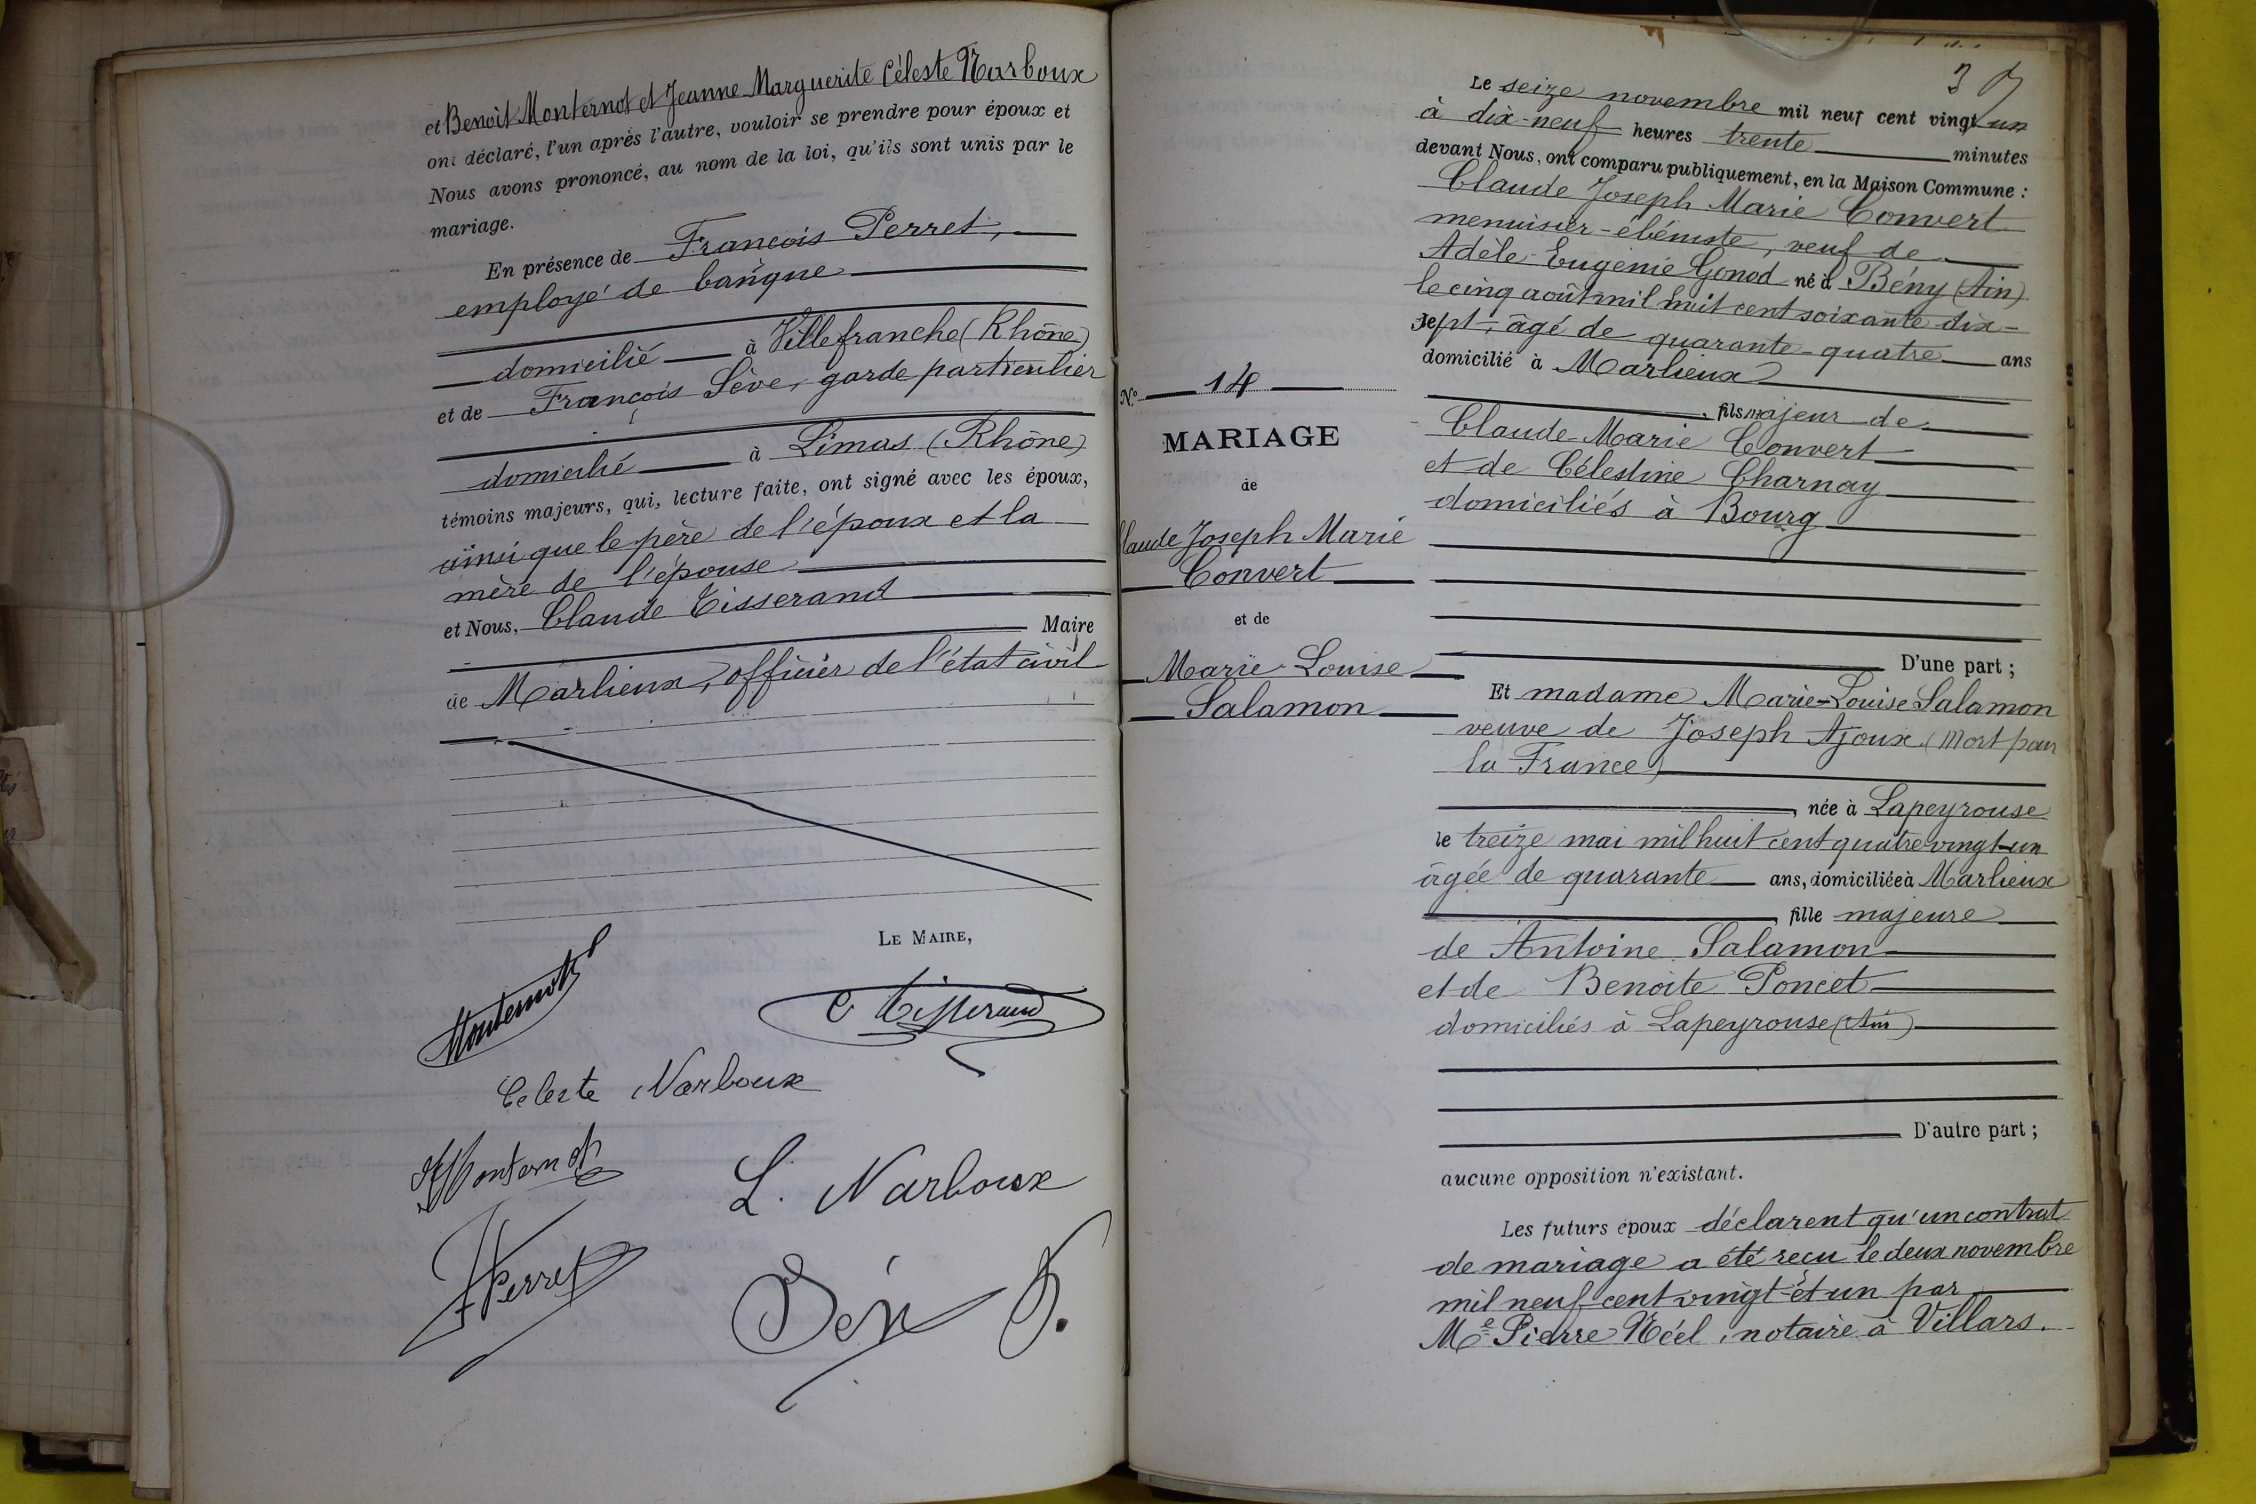 et Benoît Monternot et Jeanne Marguerite Céleste Narboux
ont déclaré, l'un après l'autre, vouloir se prendre pour époux et
Nous avons prononcé, au nom de la loi, qu'ils sont unis par le
mariage.
En présence de François Perret,
employé de banque
domicilié à Villefranche (Rhône)
et de François Sève, garde particulier
domicilié à Limas (Rhône)
témoins majeurs, qui, lecture faite, ont signé avec les époux,
ainsi que le père de l'époux et la
mère de l'épouse
et Nous, Claude Tisserand
Maire
de Marlieux, officier de l'état civil
LE MAIRE,
Monternot
C Tisserand
Celeste Narboux
Monternot
L. Narboux
F Perret
Sève F.
37
Le seize novembre mil neuf cent vingt un
à dix-neuf heures trente minutes
devant Nous, ont comparu publiquement, en la Maison Commune :
Claude Joseph Marie Convert
menuisier-ébéniste, veuf de
Adèle Eugenie Gonod né à Bény (Ain)
le cinq août mil huit cent soixante-dix-
sept, âgé de quarante-quatre ans
domicilié à Marlieux
, fils majeur de
Claude Marie Convert
et de Célestine Charnay
domiciliés à Bourg
D'une part ;
Et madame Marie-Louise Salamon
veuve de Joseph Ajoux (Mort pour
la France)
, née à Lapeyrouse
le treize mai mil huit cent quatre vingt-un
âgée de quarante ans, domiciliée à Marlieux
, fille majeure
de Antoine Salamon
et de Benoite Poncet
domiciliés à Lapeyrouse (Ain)
D'autre part ;
aucune opposition n'existant.
Les futurs époux déclarent qu'un contrat
de mariage a été reçu le deux novembre
mil neuf cent vingt-et-un par
Me Pierre Néel, notaire à Villars.
No 14
MARIAGE
de
Claude Joseph Marie
Convert
et de
Marie-Louise
Salamon